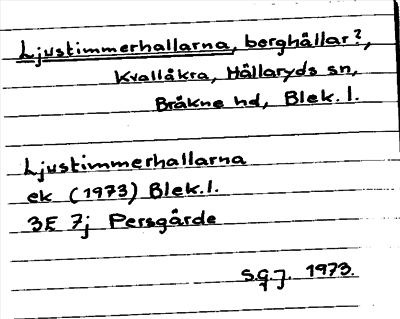 Ljustimmerhallarna, berghällar?,
Kvallåkra, Hällaryds sn,
Bräkne hd, Blek. l.
Ljustimmerhallarna
ek (1973) Blek. l.
3E 7j Persgärde
S.g.J. 1973.